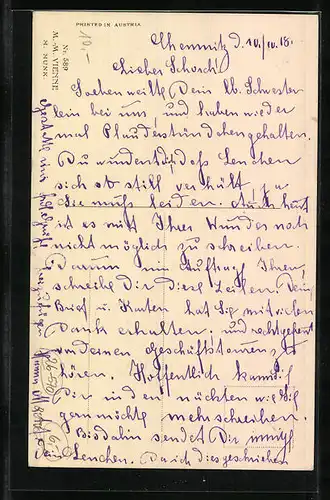 PRINTED IN AUSTRIA
Nr. 589
M. M. VIENNE
M. MUNK
10,-
Chemnitz d. 10./10. 18.
Lieber Schorsch!
Soeben weilte Dein lb. Schwester
lein bei uns, und haben wieder
mal Plauderstündchen gehalten.
Du wunderst daß Lenchen
sich so still verhält, ja
Sie muß leiden. Auch heut
ist es mit Ihrer Wunde noch
nicht möglich zu schreiben.
Darum im Auftrag Ihren,
schreibe Dir diese Zeilen. Dein
Brief u. Karten hat Sie mit vielen
Dank erhalten, und
von deinen Geschäftstouren zu
hören. Hoffentlich kann Sie
Dir in den nächten
mehr schreiben.
Bis dahin sendet Dir
Lenchen. Da ich dies geschrieben